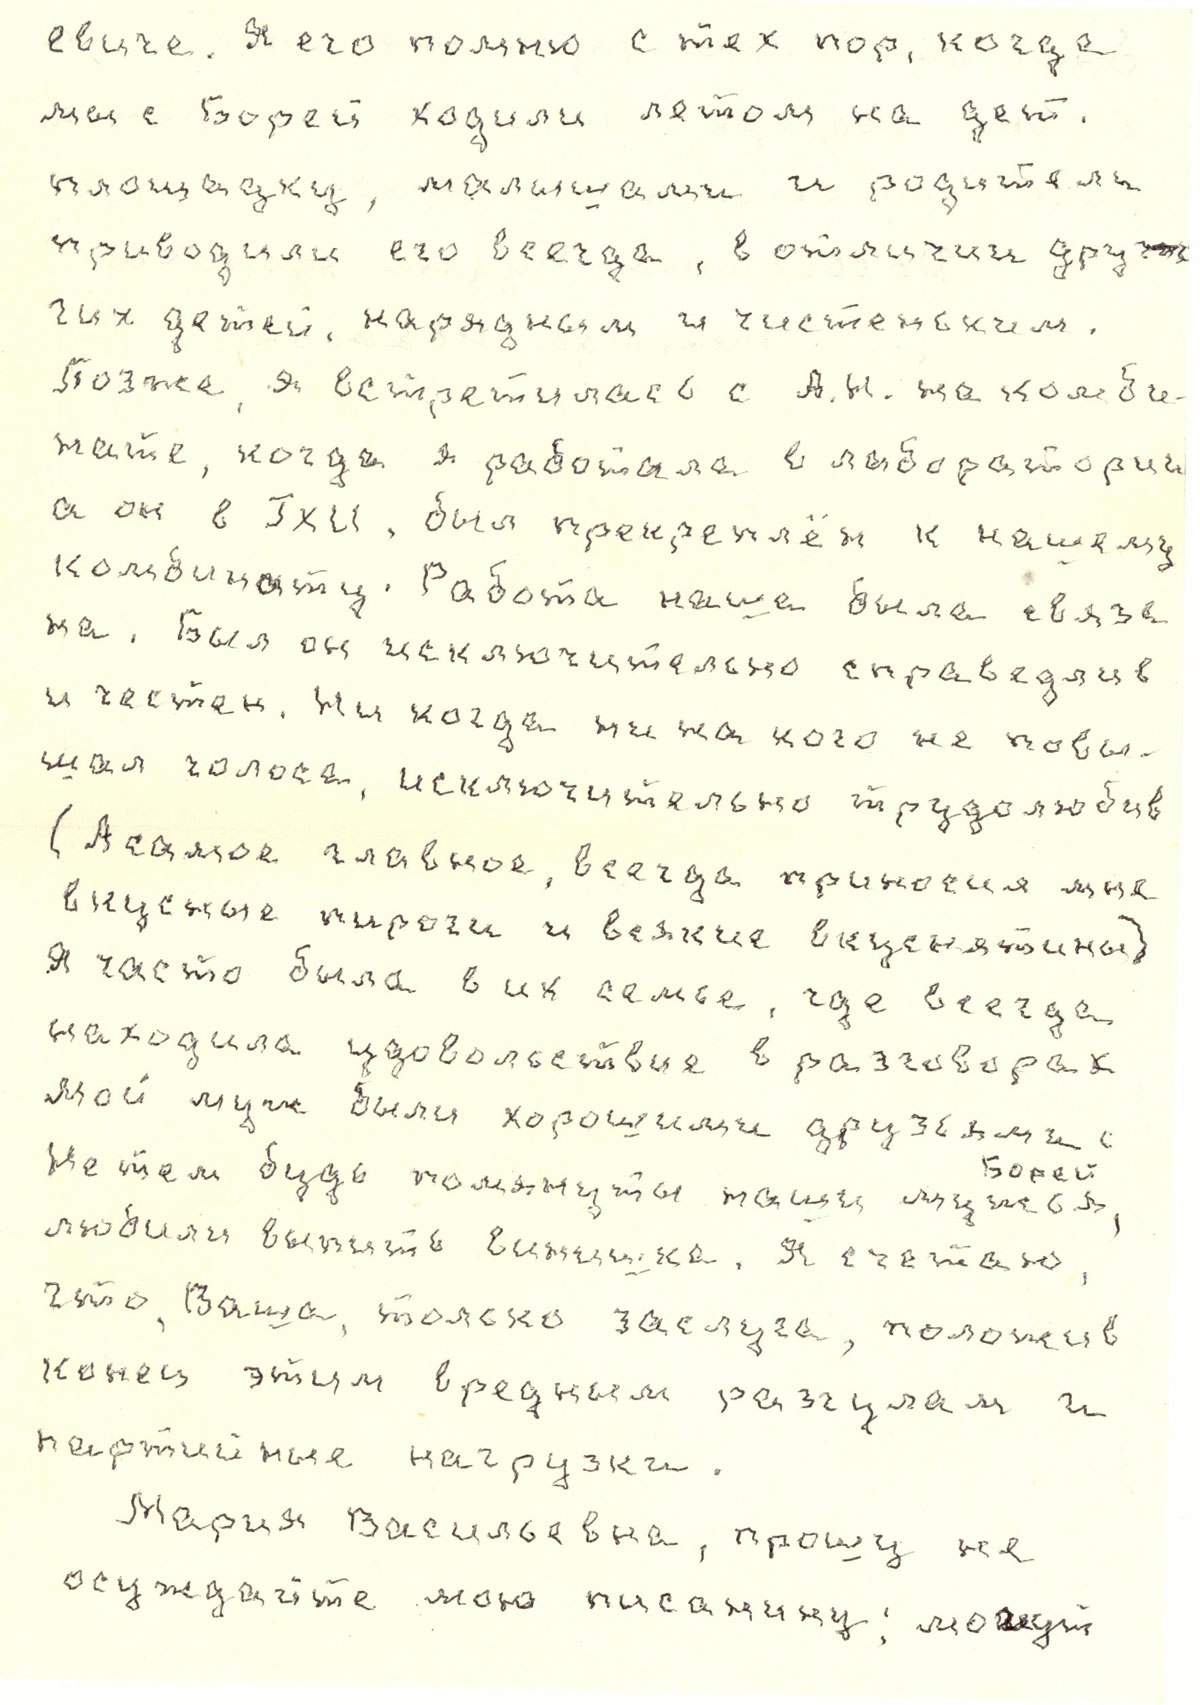 евиче. Я его помню с тех пор, когда
мы с Борей ходили летом на дет.
площадку, малышами и родители
приводили его всегда, в отличии дру
гих детей, нарядным и чистеньким.
Позже, я встретилась с А.И. на комби-
нате, когда я работала в лаборатории
а он в ТХИ, был прекреплён к нашему
комбинату. Работа наша была связа
на. Был он исключительно справедлив
и честен. Ни когда ни на кого не повы-
шал голоса, исключительно трудолюбив
(А самое главное, всегда приносил мне
вкусные пироги и всякие вкуснятины)
Я часто была в их семье, где всегда
находила удовольствие в разговорах
Мой муж были хорошими друзьями с
Борей
Не тем будь помянуты наши мужья,
любили выпить винишка. Я счетаю,
что, Ваша, только заслуга, положив
конец этим вредным разгулам и
партийные нагрузки.
Мария Васильевна, прошу не
осуждайте мою писанину; могут